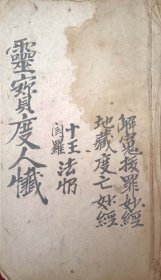 解冤拔罪妙經
地藏度亡妙經
十王法懺
閻羅
靈寶度人懺